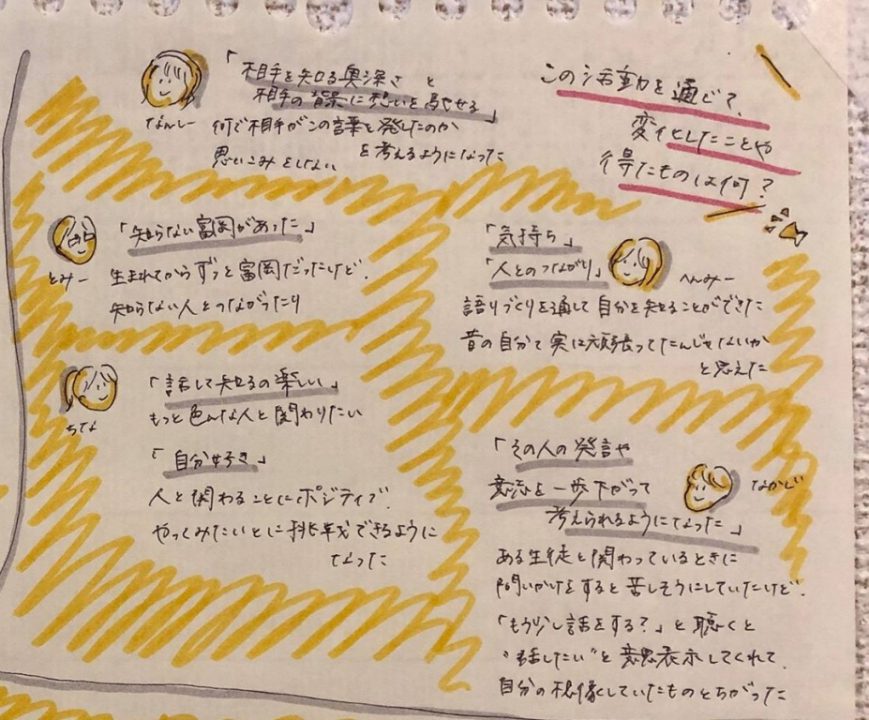 この活動を通じて、
変化したことや
得たものは何？
「相手を知る奥深さと
相手の背景に想いを馳せる」
なんしー
何で相手がこの言葉を発したのか
を考えるようになった
思いこみをしない
「知らない富岡があった」
とみー
生まれてからずっと富岡だったけど、
知らない人とつながったり
「気持ち」
「人とのつながり」
へんみー
語りづくりを通して自分を知ることができた
昔の自分て実は頑張ってたんじゃないか
と思えた
「話して知るの楽しい」
ちな
もっと色んな人と関わりたい
「自分好き」
人と関わることにポジティブで、
やってみたいことに挑戦できるように
なった
「その人の発言や
意流を一歩下がって
考えられるようになった」
なかじ
ある生徒と関わっているときに
問いかけをすると苦しそうにしていたけど、
「もう少し話をする？」と聴くと
"話したい"と意思表示してくれて、
自分の想像していたものとちがった